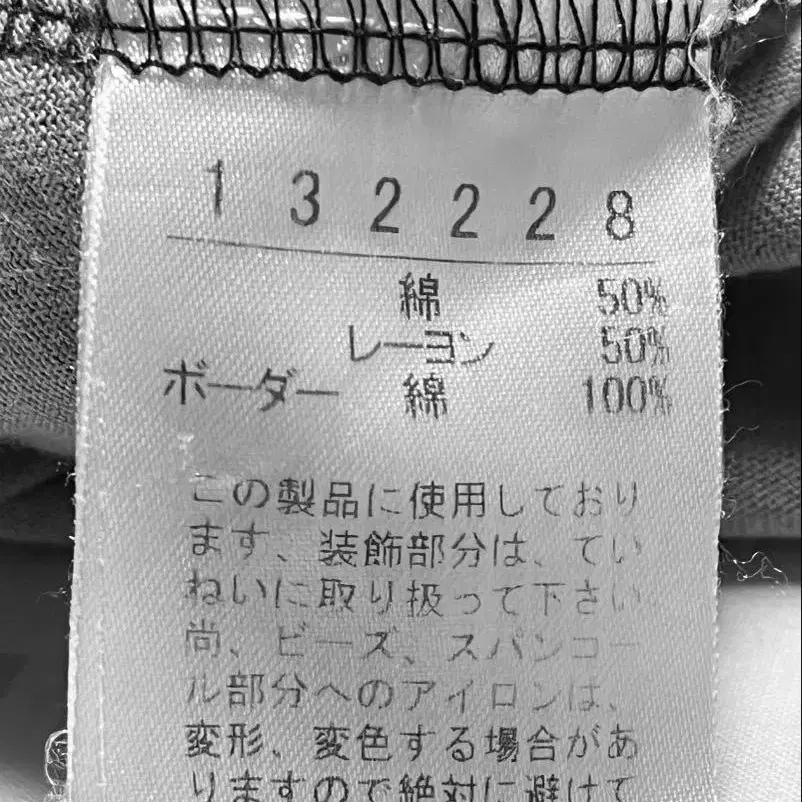 1 3 2 2 2 8
綿 50%
レーヨン 50%
ボーダー 綿 100%
この製品に使用しており
ます、装飾部分は、てい
ねいに取り扱って下さい
尚、ビーズ、スパンコー
ル部分へのアイロンは、
変形、変色する場合があ
りますので絶対に避けて